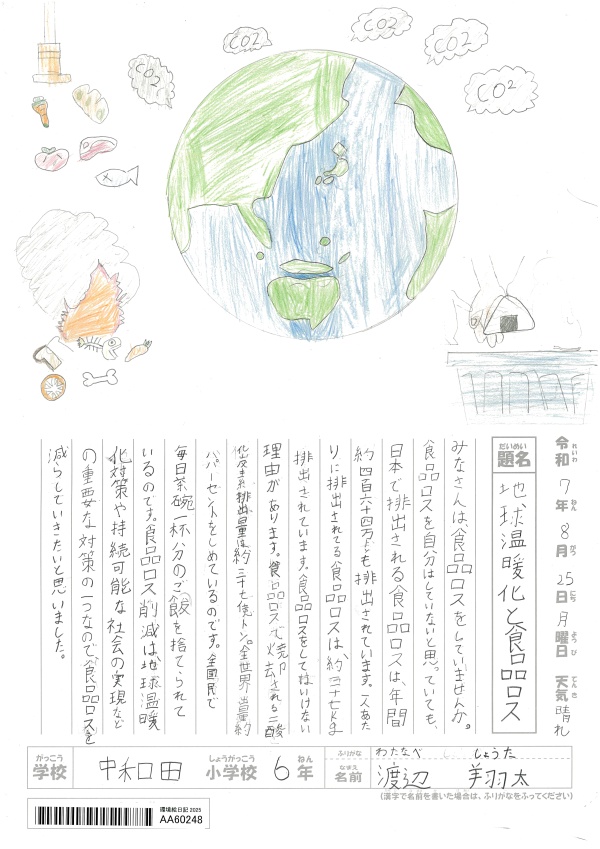 CO2
CO2
CO2
CO2
CO2
令和7年8月25日月曜日 天気晴れ
れいわ ねん がつ にち ようび てんき
だいめい
題名 地球温暖化と食品ロス
みなさんは、食品ロスをしていませんか。
食品ロスを自分はしていないと思っていても、
日本で排出される食品ロスは、年間
約四百六十四万トンも排出されています。一人あた
りに排出されてる食品ロスは約三十七kg
排出されています。食品ロスをしてはいけない
理由があります。食品ロスで焼却される二酸
化炭素排出量は約三十七億トン。全世界の量約
パーセントをしめているのです。全国民で
毎日茶碗一杯分のご飯を捨てられて
いるのです。食品ロス削減は地球温暖
化対策や持続可能な社会の実現など
の重要な対策の一つなので食品ロスを
減らしていきたいと思いました。
がっこう しょうがっこう ねん
学校 中和田 小学校 6年
ふりがな わたなべ しょうた
なまえ
名前 渡辺 翔太
(漢字で名前を書いた場合は、ふりがなをふってください)
環境絵日記 2025
AA60248